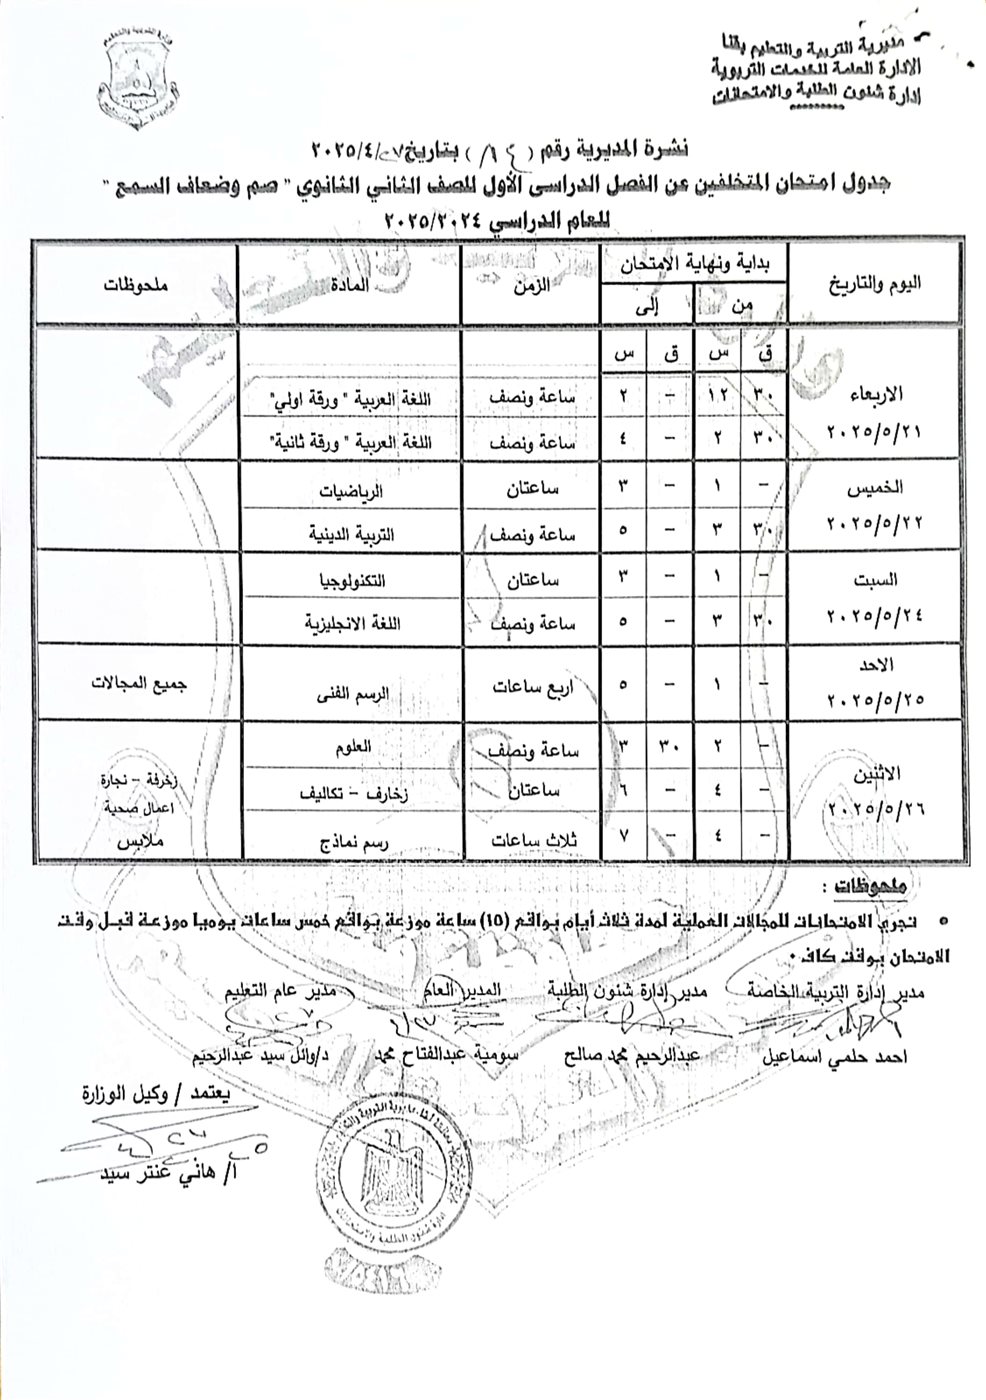 وزارة التربية والتعليم
مديرية التربية والتعليم بقنا
الادارة العامة للخدمات التربوية
إدارة شئون الطلبة والامتحانات
نشرة المديرية رقم ( ) بتاريخ ٢٧/٤/٢٠٢٥
جدول امتحان المتخلفين عن الفصل الدراسى الأول للصف الثاني الثانوي " صم وضعاف السمع "
للعام الدراسي ٢٠٢٥/٢٠٢٤
اليوم والتاريخ بداية ونهاية الامتحان الزمن المادة ملحوظات
من إلى
ق س ق س
الاربعاء ٢٠٢٥/٥/٢١
٣٠ ١٢ – ٢ ساعة ونصف اللغة العربية " ورقة اولي"
٣٠ ٢ – ٤ ساعة ونصف اللغة العربية " ورقة ثانية"
الخميس ٢٠٢٥/٥/٢٢
– ١ – ٣ ساعتان الرياضيات
٣٠ ٣ – ٥ ساعة ونصف التربية الدينية
السبت ٢٠٢٥/٥/٢٤
– ١ – ٣ ساعتان التكنولوجيا
٣٠ ٣ – ٥ ساعة ونصف اللغة الانجليزية
الاحد ٢٠٢٥/٥/٢٥
– ١ – ٥ اربع ساعات الرسم الفنى جميع المجالات
الاثنين ٢٠٢٥/٥/٢٦
– ٢ ٣٠ ٣ ساعة ونصف العلوم
– ٤ – ٦ ساعتان زخارف – تكاليف زخرفة – نجارة
اعمال صحية
– ٤ – ٧ ثلاث ساعات رسم نماذج ملابس
ملحوظات :
• تجرى الامتحانات للمجالات العملية لمدة ثلاث أيام بواقع (١٥) ساعة موزعة بواقع خمس ساعات يوميا موزعة قبل وقت
الامتحان بوقت كاف .
مدير إدارة التربية الخاصة مدير إدارة شئون الطلبة المدير العام مدير عام التعليم
احمد حلمي اسماعيل عبدالرحيم محمد صالح سومية عبدالفتاح محمد د/وائل سيد عبدالرحيم
يعتمد / وكيل الوزارة
أ/ هاني عنتر سيد
إدارة شئون الطلبة والامتحانات